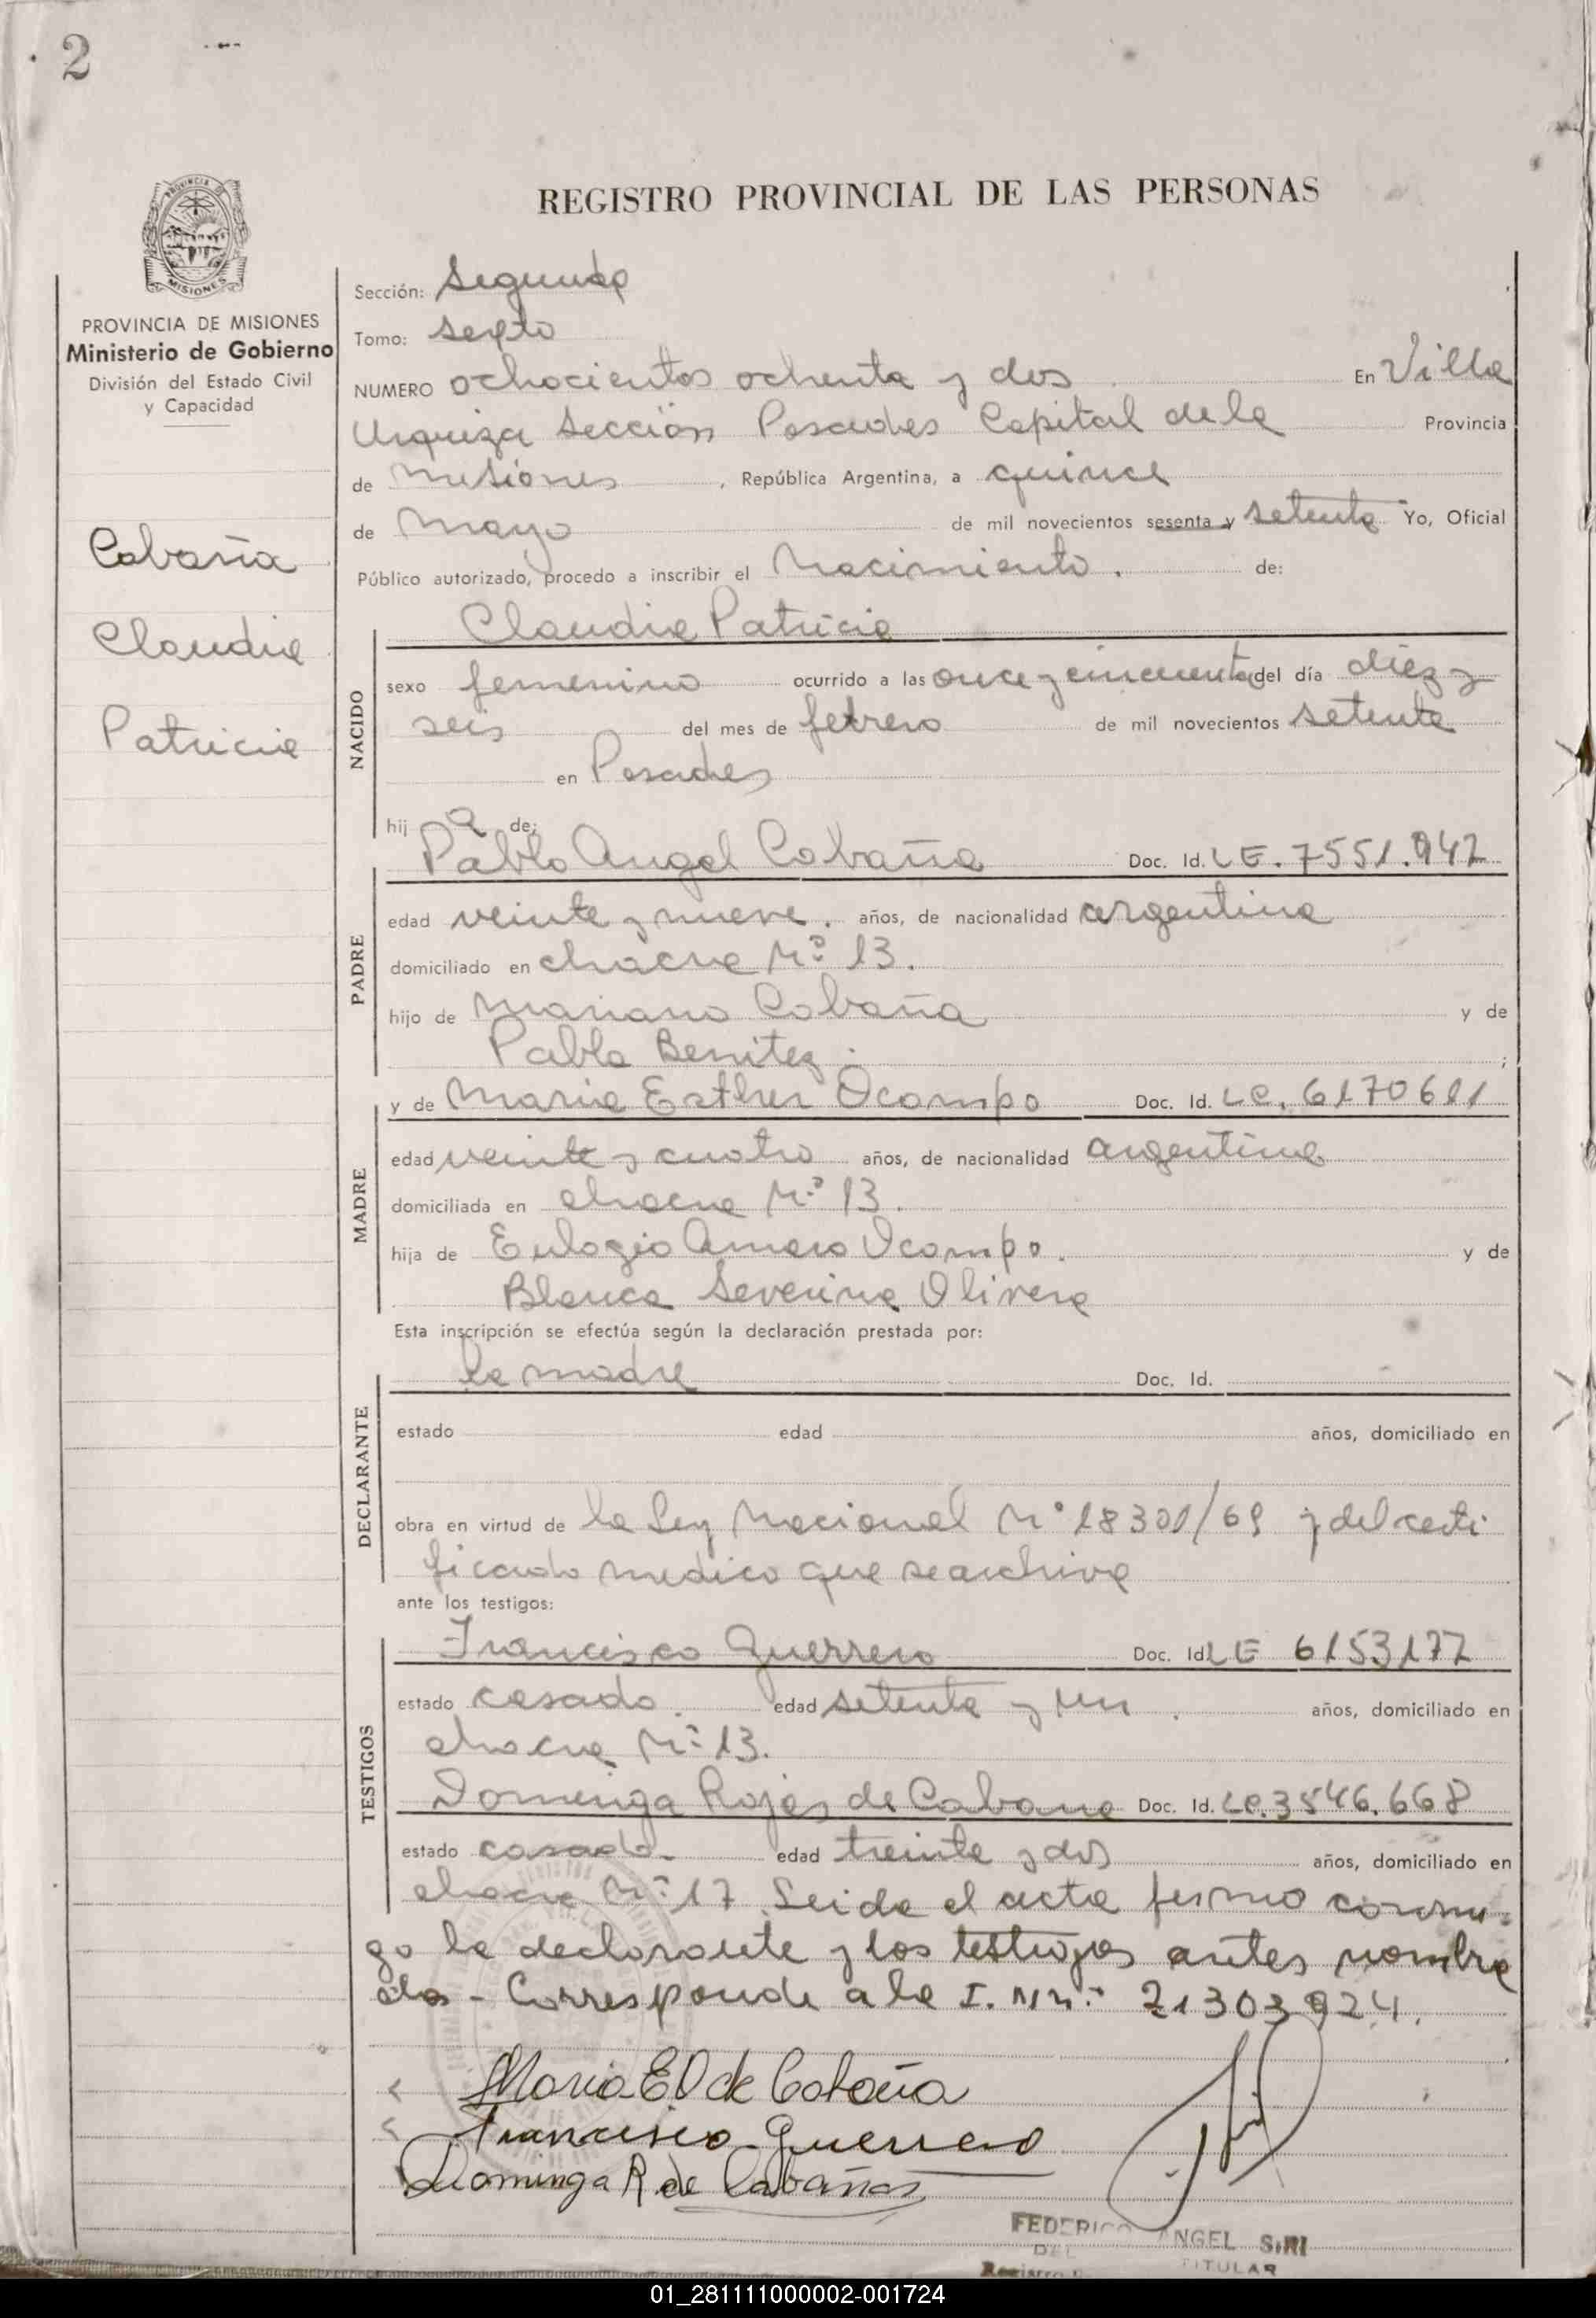 2
REGISTRO PROVINCIAL DE LAS PERSONAS
PROVINCIA DE
MISIONES
PROVINCIA DE MISIONES
Ministerio de Gobierno
División del Estado Civil
y Capacidad
Cabaña
Claudia
Patricia
Sección: Segunda
Tomo: sexto
NUMERO ochocientos ochenta y dos En Villa
Urquiza Sección Posadas Capital de la Provincia
de Misiones, República Argentina, a quince
de Mayo de mil novecientos sesenta y setenta Yo, Oficial
Público autorizado, procedo a inscribir el Nacimiento. de:
Claudia Patricia
NACIDO
sexo femenino ocurrido a las once y cincuenta del día diez y
seis del mes de febrero de mil novecientos setenta
en Posadas
hij a de:
Pablo Angel Cabaña Doc. Id. LE. 7551.942
PADRE
edad veinte y nueve. años, de nacionalidad argentina
domiciliado en chacra Nº 13.
hijo de Mariano Cabaña y de
Pabla Benitez. ;
y de Maria Esther Ocampo Doc. Id. LC. 6170611
MADRE
edad veinte y cuatro años, de nacionalidad argentina
domiciliada en chacra Nº 13.
hija de Eulogio Amaro Ocampo. y de
Blanca Severina Olivera
Esta inscripción se efectúa según la declaración prestada por:
la madre Doc. Id.
DECLARANTE
estado edad años, domiciliado en
obra en virtud de la Ley Nacional Nº 18301/69 y del certi
ficado medico que se archiva
ante los testigos:
TESTIGOS
Francisco Guerrero Doc. Id LE 6153177
estado casado. edad setenta y un. años, domiciliado en
chacra Nº 13.
Dominga Rojas de Cabana Doc. Id. LC.3546.668
estado casada. edad treinta y dos años, domiciliado en
chacra Nº 17. Leida el acta firma conmi-
go la declarante y los testigos antes nombra
dos - Corresponde a la I. Mn: 21303924.
Maria E O de Cabaña
Francisco Guerrero
Dominga R. de Cabañas
FEDERICO ANGEL SIRI
TITULAR
01_281111000002-001724